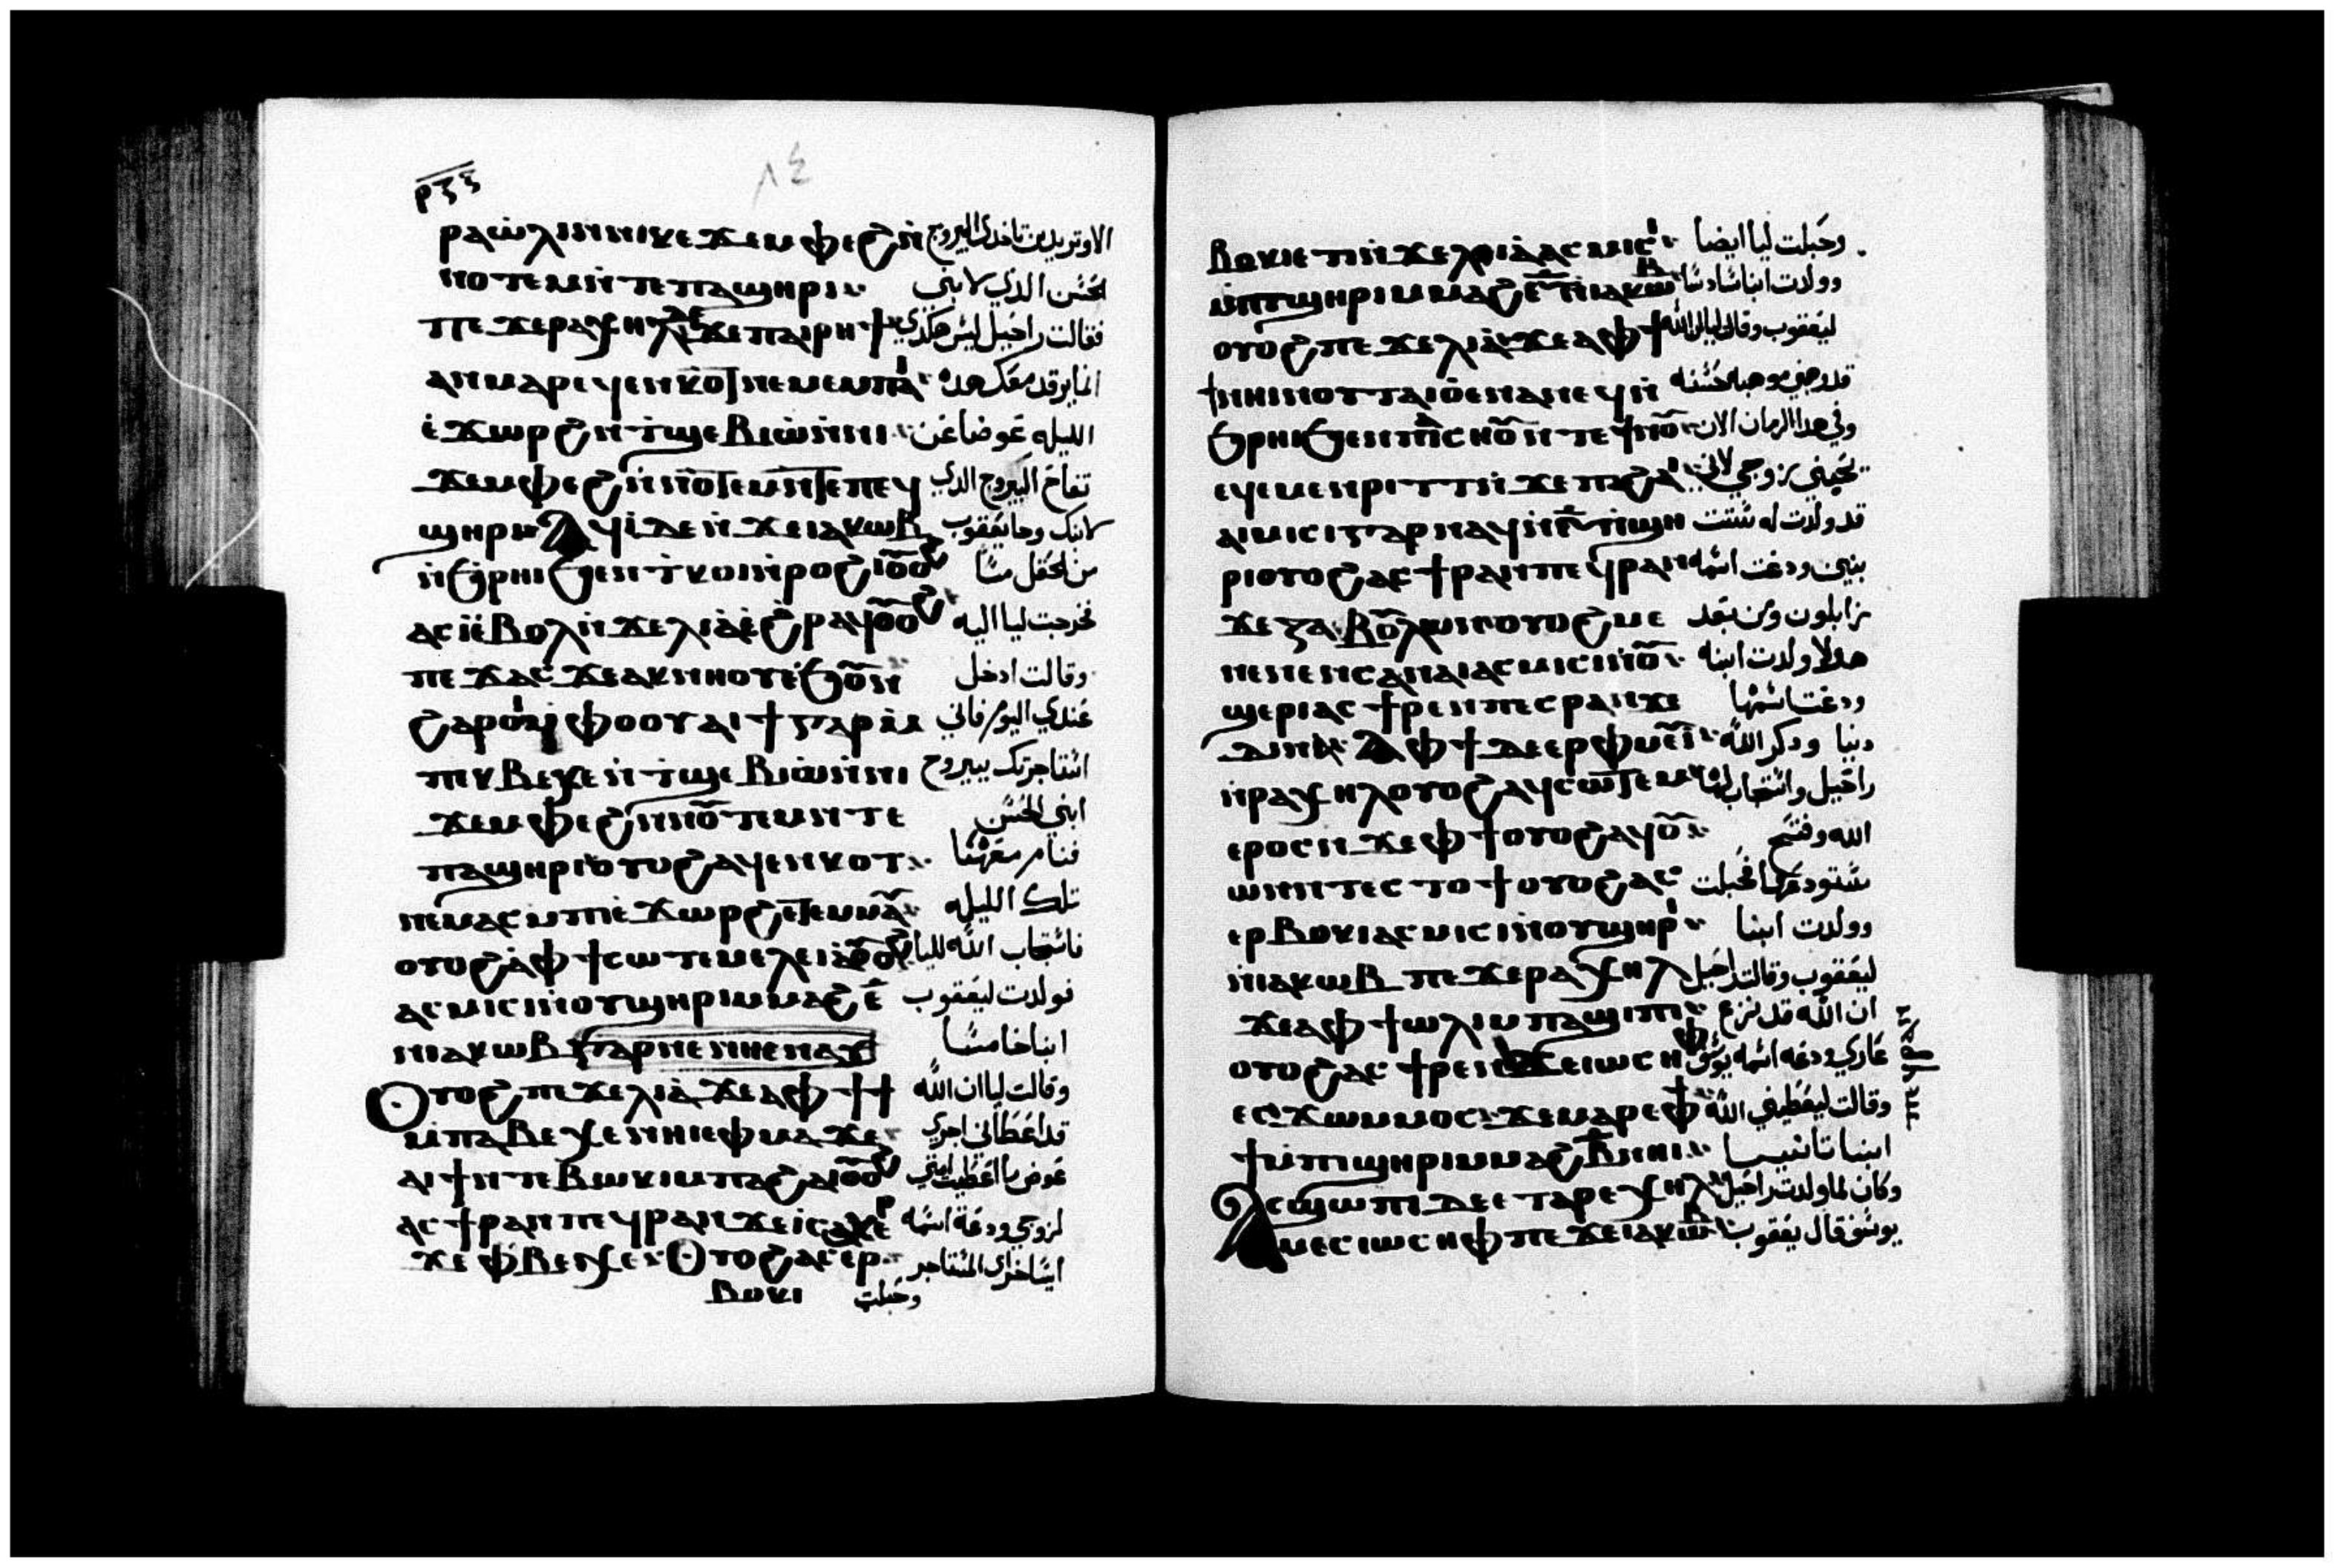 ⲣⲝⲍ
٨٤
ⲣⲁⲱ̀ⲗⲓ ⲛⲛⲓⲕⲉϫⲉⲙⲫⲉϩ ⲛ̀ الا وتريدين تاخدي اليبروج
ⲛⲟⲧⲉⲙ ⲛ̀ⲧⲉ ⲡⲁϣⲏⲣⲓ الحسن الدي لابني
ⲡⲉϫⲉ ⲣⲁⲭⲏⲗ ⲇⲉ ϫⲉ ⲡⲁⲓⲣⲏϯ فقالت راحيل ليس هكذي
ⲁⲛ ⲙⲁⲣⲉϥⲉⲛⲕⲟⲧ ⲛⲉⲙⲉ ⲙⲡⲁⲓ انما يرقد معك هده
ⲉ̀ϫⲱⲣϩ ⲛ̀ⲧϣⲉⲃⲓⲱ̀ ⲛ̀ⲛⲓ الليله عوضا عن
ϫⲉⲙⲫⲉϩ ⲛ̀ⲛⲟⲧⲉⲙ ⲛ̀ⲧⲉ ⲡⲉ تفاح اليبروج الدي
ϣⲏⲣⲓ ⲁϥⲓ̀ ⲇⲉ ⲛ̀ϫⲉ ⲓⲁⲕⲱⲃ لابنك وجا يعقوب
ⲛ̀ϧⲣⲏⲓ ϧⲉⲛ ⲧⲕⲟⲓ ⲛ̀ⲣⲟⲩϩⲓ ⲟⲩⲟϩ من الحقل مسا
ⲁⲥⲓ̀ ⲉ̀ⲃⲟⲗ ⲛ̀ϫⲉ ⲗⲓⲁ̀ ⲉ̀ϩⲣⲁϥ ⲟⲩⲟϩ فخرجت ليا اليه
ⲡⲉϫⲁⲥ ϫⲉ ⲁⲕⲛⲏⲟⲩ ⲉ̀ϧⲟⲩⲛ وقالت ادخل
ϩⲁⲣⲟⲓ ⲙ̀ⲫⲟⲟⲩ ⲁⲓϯ ⲅⲁⲣ ⲙ̀ عندي اليوم فاني
ⲡⲕⲃⲉⲭⲉ ⲛ̀ⲧϣⲉⲃⲓⲱ̀ ⲛ̀ⲛⲓ استاجرتك بيبروج
ϫⲉⲙⲫⲉϩ ⲛ̀ⲛⲟⲩⲧⲉⲙ ⲛⲧⲉ ابني الحسن
ⲡⲁϣⲏⲣⲓ ⲟⲩⲟϩ ⲁϥⲉⲛⲕⲟⲧ فنام معها
ⲛⲉⲙⲁⲥ ⲙⲡⲓⲉ̀ϫⲱⲣϩ ⲉⲧⲉⲙⲙⲁⲩ تلك الليله
ⲟⲩⲟϩ ⲁ̀ ⲫϯ ⲥⲱⲧⲉⲙ ⲉ ⲗⲉⲓⲁ̀ ⲟⲩⲟϩ فاستجاب الله لليا
ⲁⲥⲙⲓⲥⲓ ⲛ̀ⲟⲩϣⲏⲣⲓ ⲙⲙⲁϩⲉ̅ فولدت ليعقوب
ⲛⲓⲁⲕⲱⲃ ابنا خامسا
Ⲟⲩⲟϩ ⲡⲉϫⲉ ⲗⲓⲁ̀ ϫⲉ ⲁ ⲫϯ ϯ وقالت ليا ان الله
ⲙ̀ⲡⲁⲃⲉⲭⲉ ⲛⲏⲓ ⲉⲫⲙⲁ ϫⲉ قد اعطاني اجري
ⲁⲓϯ ⲛⲧⲉ ⲃⲱⲕⲓ ⲙⲡⲁϩⲁⲓ ⲟⲩⲟϩ عوض ما اعطيت امتي
ⲁⲥϯⲣⲁⲛ ⲡⲉϥⲣⲁⲛ ϫⲉ ⲓⲥⲁⲭⲁⲣ لزوجي ودعة اسمه
ϫⲉ ⲫⲃⲉⲭⲉ Ⲟⲩⲟϩ ⲁⲥⲉⲣ ايساخر اي المستاجر
ⲃⲟⲕⲓ وحبلت
ⲃⲟⲕⲓ ⲉⲧⲓ ⲛ̀ϫⲉ ⲗⲓⲁ̀ ⲁⲥⲙⲓⲥⲓ وحبلت ليا ايضا
ⲙ̀ⲡϣⲏⲣⲓ ⲙⲙⲁϩⲋ̅ ⲛⲓⲁⲕⲱⲃ وولدت ابنا سادسا
ⲟⲩⲟϩ ⲡⲉϫⲉ ⲗⲓⲁ̀ ϫⲉ ⲁ ⲫϯ ليعقوب وقالت ليا ان الله
ϯ ⲛⲏⲓ ⲛⲟⲩⲧⲁⲓⲟ̀ ⲉⲛⲁⲛⲉϥ ⲛ̀ قد وهبني موهبه حسنه
ϧⲣⲏⲓ ϧⲉⲛ ⲡⲁⲓⲥⲏⲟⲩ ⲛⲧⲉ ϯⲛⲟⲩ وفي هدا الزمان الان
ⲉϥⲉⲙⲉⲛⲣⲓⲧⲧ ⲛ̀ϫⲉ ⲡⲁϩⲁⲓ يحبني زوجي لاني
ⲁⲓⲙⲓⲥⲓ ⲅⲁⲣ ⲛⲁϥ ⲛ̀ⲋ̅ ⲛ̀ϣⲏ قد ولدت له ستت
ⲣⲓ ⲟⲩⲟϩ ⲁⲥϯⲣⲁⲛ ⲡⲉϥⲣⲁⲛ بنين ودعت اسمه
ϫⲉ ⲍⲁⲃⲟⲩⲗⲱⲛ ⲟⲩⲟϩ ⲙⲉ زابلون ومن بعد
ⲛⲉⲛⲉⲛⲥⲁ ⲛⲁⲓ ⲁⲥⲙⲓⲥⲓ ⲛⲟⲩ هولا ولدت ابنه
ϣⲉⲣⲓ ⲁⲥϯⲣⲉⲛ ⲡⲉⲥⲣⲁⲛ ϫⲉ ودعت اسمها
ⲇⲓⲛⲁ ⲁ ⲫϯ ⲇⲉ ⲉⲣⲫⲙⲉⲩⲓ̀ دينا ودكر الله
ⲛ̀ⲣⲁⲭⲏⲗ ⲟⲩⲟϩ ⲁϥⲥⲱⲧⲉⲙ راحيل واستجاب لها
ⲉⲣⲟⲥ ⲛϫⲉ ⲫϯ ⲟⲩⲟϩ ⲁϥⲟⲩ الله وفتح
ⲱⲛ ⲛⲧⲉⲥⲧⲟϯ ⲟⲩⲟϩ ⲁⲥ مستودعها فحبلت
ⲉⲣⲃⲟⲕⲓ ⲁⲥⲙⲓⲥⲓ ⲛ̀ⲟⲩϣⲏⲣⲓ وولدت ابنا
ⲛ̀ⲓⲁⲕⲱⲃ ⲡⲉϫⲉ ⲣⲁⲭⲏⲗ ليعقوب وقالت راحيل
ϫⲉ ⲁ ⲫϯ ⲱⲗⲓ ⲙⲡⲁϣⲓⲡⲓ ان الله قد نزع
ⲟⲩⲟϩ ⲁⲥϯⲣⲉⲛϥ ϫⲉ ⲓⲱⲥⲏⲫ عاري ودعه اسمه يوسف
ⲉⲥϫⲱ ⲙⲙⲟⲥ ϫⲉ ⲙⲁⲣⲉ ⲫϯ وقالت ليعطيني الله
ϯ ⲙ̀ⲡⲓϣⲏⲣⲓ ⲙⲙⲁϩⲃ̅ ⲛⲏⲓ ابنا تانيا
Ⲁⲥϣⲱⲡⲓ ⲇⲉ ⲉⲧⲁ ⲣⲉⲭⲏⲗ وكان لما ولدت راحيل
ⲙⲉⲥ ⲓⲱⲥⲏⲫ ⲡⲉϫⲉ ⲓⲁⲕⲱⲃ يوسف قال يعقوب